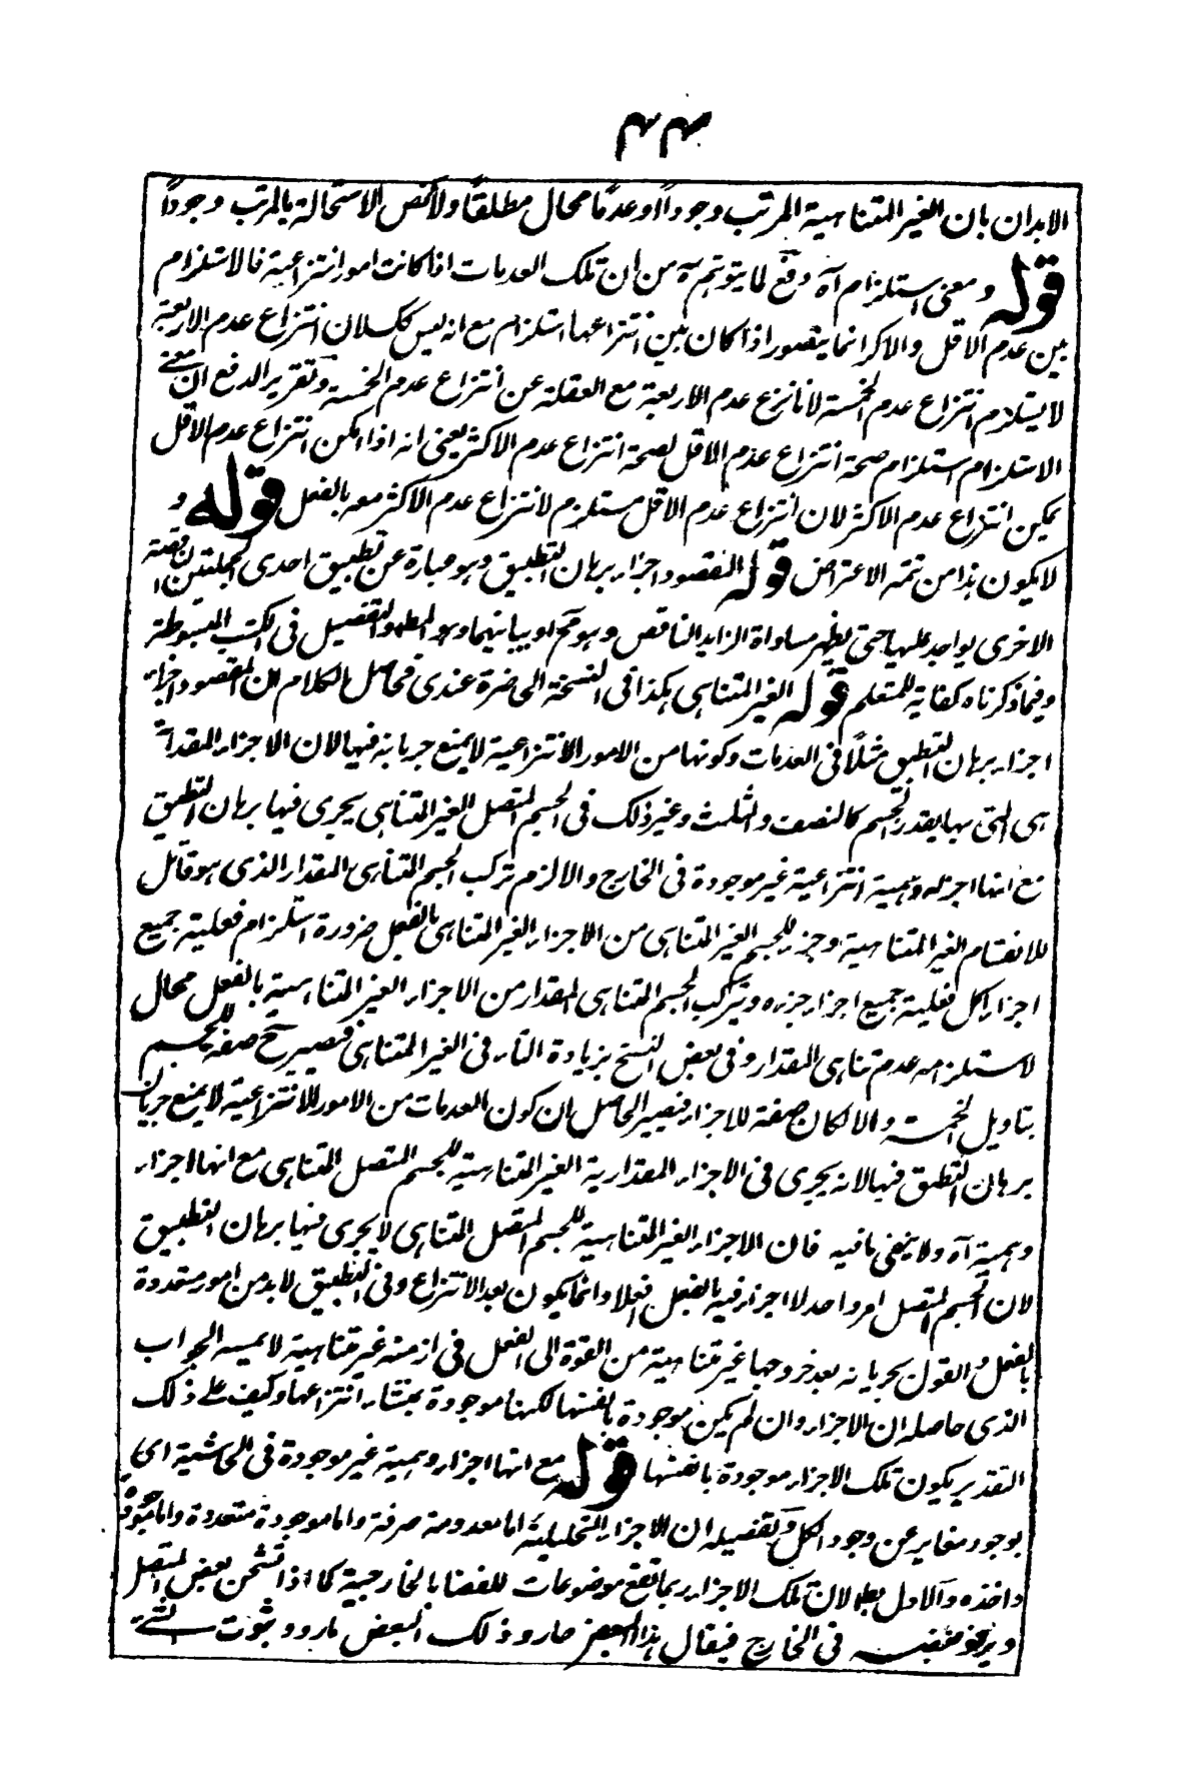 ۴۴
الابدان بان الغير المتناهية المرتب وجودًا او عدمًا محال مطلقًا ولا تخص الاستحالة بالمرتب وجودًا
قوله ومعنى استلزام آه دفع لما يتوهم من ان تلك العدمات اذا كانت امور انتزاعية فالاستلزام
بين عدم الاقل والاكثر انما يتصور اذا كان بين انتزاعها استلزام مع انه ليس كك لان انتزاع عدم الاربعة
لا يستلزم انتزاع عدم الخمسة لانا ننزع عدم الاربعة مع الغفلة عن انتزاع عدم الخمسة وتقرير الدفع ان معنى
الاستلزام استلزام صحة انتزاع عدم الاقل لصحة انتزاع عدم الاكثر يعنى انه اذا امكن انتزاع عدم الاقل
يمكن انتزاع عدم الاكثر لان انتزاع عدم الاقل مستلزم لانتزاع عدم الاكثر معه بالفعل قوله و
لا يكون هذا من تتمه الاعتراض قوله المقصود اجراء برهان التطبيق وهو عبارة عن تطبيق احدى الجملتين
الاخرى بواحد عليها حتى يظهر مساواة الزايد الناقص وهو مح او بيانيهما وهو المط والتفصيل فى الكتب المبسوطة
وفيما ذكرناه كفاية للمتعلم قوله الغير المتناهى هكذا فى النسخة الحاضرة عندى فحاصل الكلام ان المقصود اجراء
اجزاء برهان التطبيق مثلًا فى العدمات وكونها من الامور الانتزاعية لا يمنع جريانه فيها لان الاجزاء المقدارية
هى التى بها يقدر الجسم كالنصف والثلث وغير ذلك فى الجسم المتصل الغير المتناهى يجرى فيها برهان التطبيق
مع انها اجزاء وهمية انتزاعية غير موجودة فى الخارج والا لزم تركب الجسم المتناهى المقدار الذى هو قابل
للانقسام الغير المتناهية وجزء للجسم الغير المتناهى من الاجزاء الغير المتناهى بالفعل ضرورة استلزام فعلية جميع
اجزاء الكل فعلية جميع اجزاء جزءه وتركب الجسم المتناهى المقدار من الاجزاء الغير المتناهية بالفعل محال
لاستلزامه عدم تناهى المقدار وفى بعض النسخ بزيادة التاء فى الغير المتناهى فيصير ح صفة للجسم
بتاويل الجمسة والا لكان صفة للاجزاء فيصير الحاصل ان كون العدمات من الامور الانتزاعية لا يمنع جريان
برهان التطبيق فيها لانه يجرى فى الاجزاء المقدارية الغير المتناهية للجسم المتصل المتناهى مع انها اجزاء
وهمية آه ولا يخفى ما فيه فان الاجزاء الغير المتناهية للجسم المتصل المتناهى لا يجرى فيها برهان التطبيق
لان الجسم المتصل امر واحد لا اجزاء فيه بالفعل اصلا وانما يكون بعد الانتزاع وفى التطبيق لا بد من امور متعددة
بالفعل والقول بجريانه بعد خروجها غير متناهية من القوة الى الفعل فى ازمنة غير متناهية لا يميسه الجواب
الذى حاصله ان الاجزاء وان لم يكن موجودة بانفسها لكنها موجودة بمنشاء انتزاعها وكيف على ذلك
التقدير يكون تلك الاجزاء موجودة بانفسها قوله مع انها اجزاء وهمية غير موجودة فى الحاشية اى
بوجود مغاير عن وجود الكل وتفصيله ان الاجزاء التحليلية اما معدومة صرفة واما موجودة متعددة واما موجودة
واحدة والاول بط لان تلك الاجزاء ربما تقع موضوعات للقضايا الخارجية كما اذا تسخن بعض المتصل
وبرد بعضه فى الخارج فيقال هذا البعض حار وذلك البعض بارد وثبوت الشئ